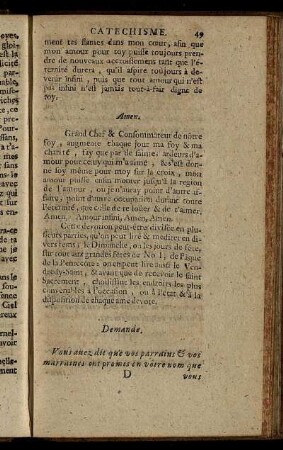 CATECHISME. 49
ment tes flames dans mon cœur, afin que
mon amour pour toy puisse toujours prendre
de nouveaux accroissemens tant que l'é-
ternité durera, qu'il aspire toujours à de-
venir infini, puis que tout amour qui n'est
pas infini n'est jamais tout-à-fait digne de
toy.
Amen.
Grand Chef & Consommateur de nôtre
foy, augmente chaque jour ma foy & ma
charité, fay que par de saintes ardeurs d'a-
mour pour celuy qui m'a aimé, & s'est don-
né soy même pour moy sur la croix, mon
ame puisse enfin monter jusqu'à la region
de l'amour, où je n'auray point d'autre de-
sir, point d'autre occupation durant toute
l'eternité, que celle de te loüer & de t'aimer,
Amen. Amour infini, Amen, Amen.
Cette devotion peut-être divisée en plu-
sieurs parties, qu'on peut lire & mediter en di-
vers tems; le Dimanche, ou les jours de fête,
sur tout aux grandes fêtes de Noël, de Pâque
de la Pentecote: on en peut lire aussi le Ven-
dredy-saint, & avant que de recevoir le saint
Sacrement, choisissant les endroits les plus
convenables à l'occasion, ou à l'état & à la
disposition de chaque ame devote.
Demande.
Vous avez dit que vos parrains & vos
marraines ont promis en votre nom que
D vous